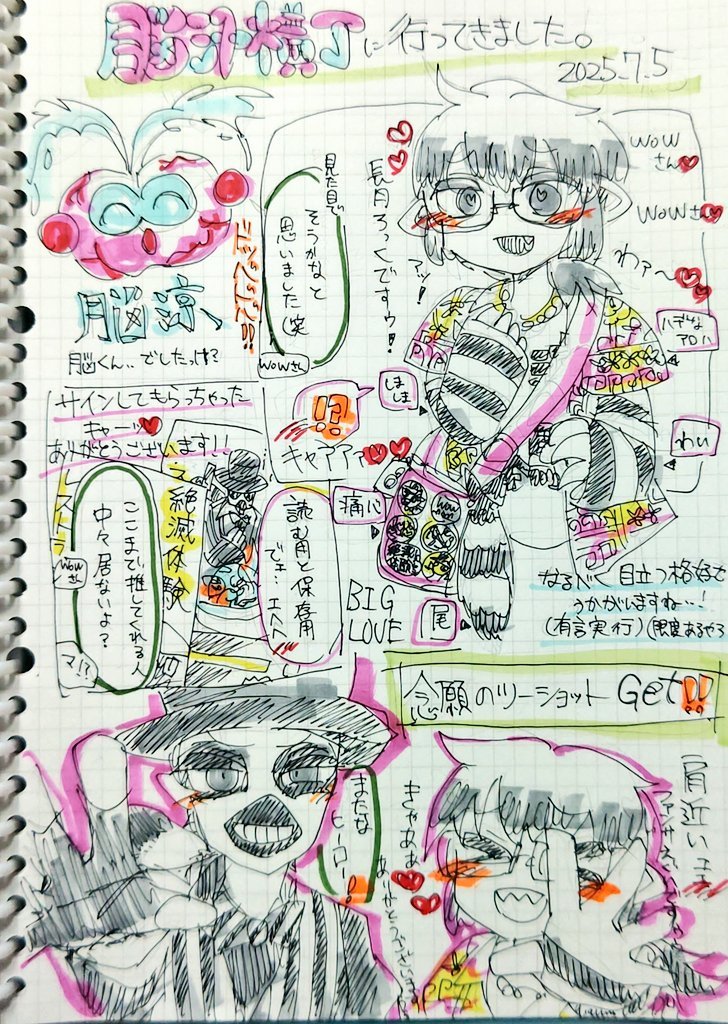 脳汁横丁に行ってきました。
2025.7.5
脳涼、
脳くん‥でしたっけ?
ドッペッドン!!
見た目で
そうかなと
思いました(笑
wowさん
長月ろっくですゥ!
アッ!
wow
さん
wowさん
わァ〜
ハデな
アロハ
しま
しま
わい
!?
キャアアァ
痛バ
BIG
LOVE
尾
なるべく目立つ格好で
うかがいますね…!
(有言実行)
サインしてもらっちゃった
キャーッ
ありがとうございます!!
絶滅体験
読む用と保存用
でェ…エヘヘ
ここまで推してくれる人
中々居ないよ?
wowさん
マ!?
念願のツーショットGet!!
またな
ヒーロー!
きゃああ
ありがとうございます
肩近いェ